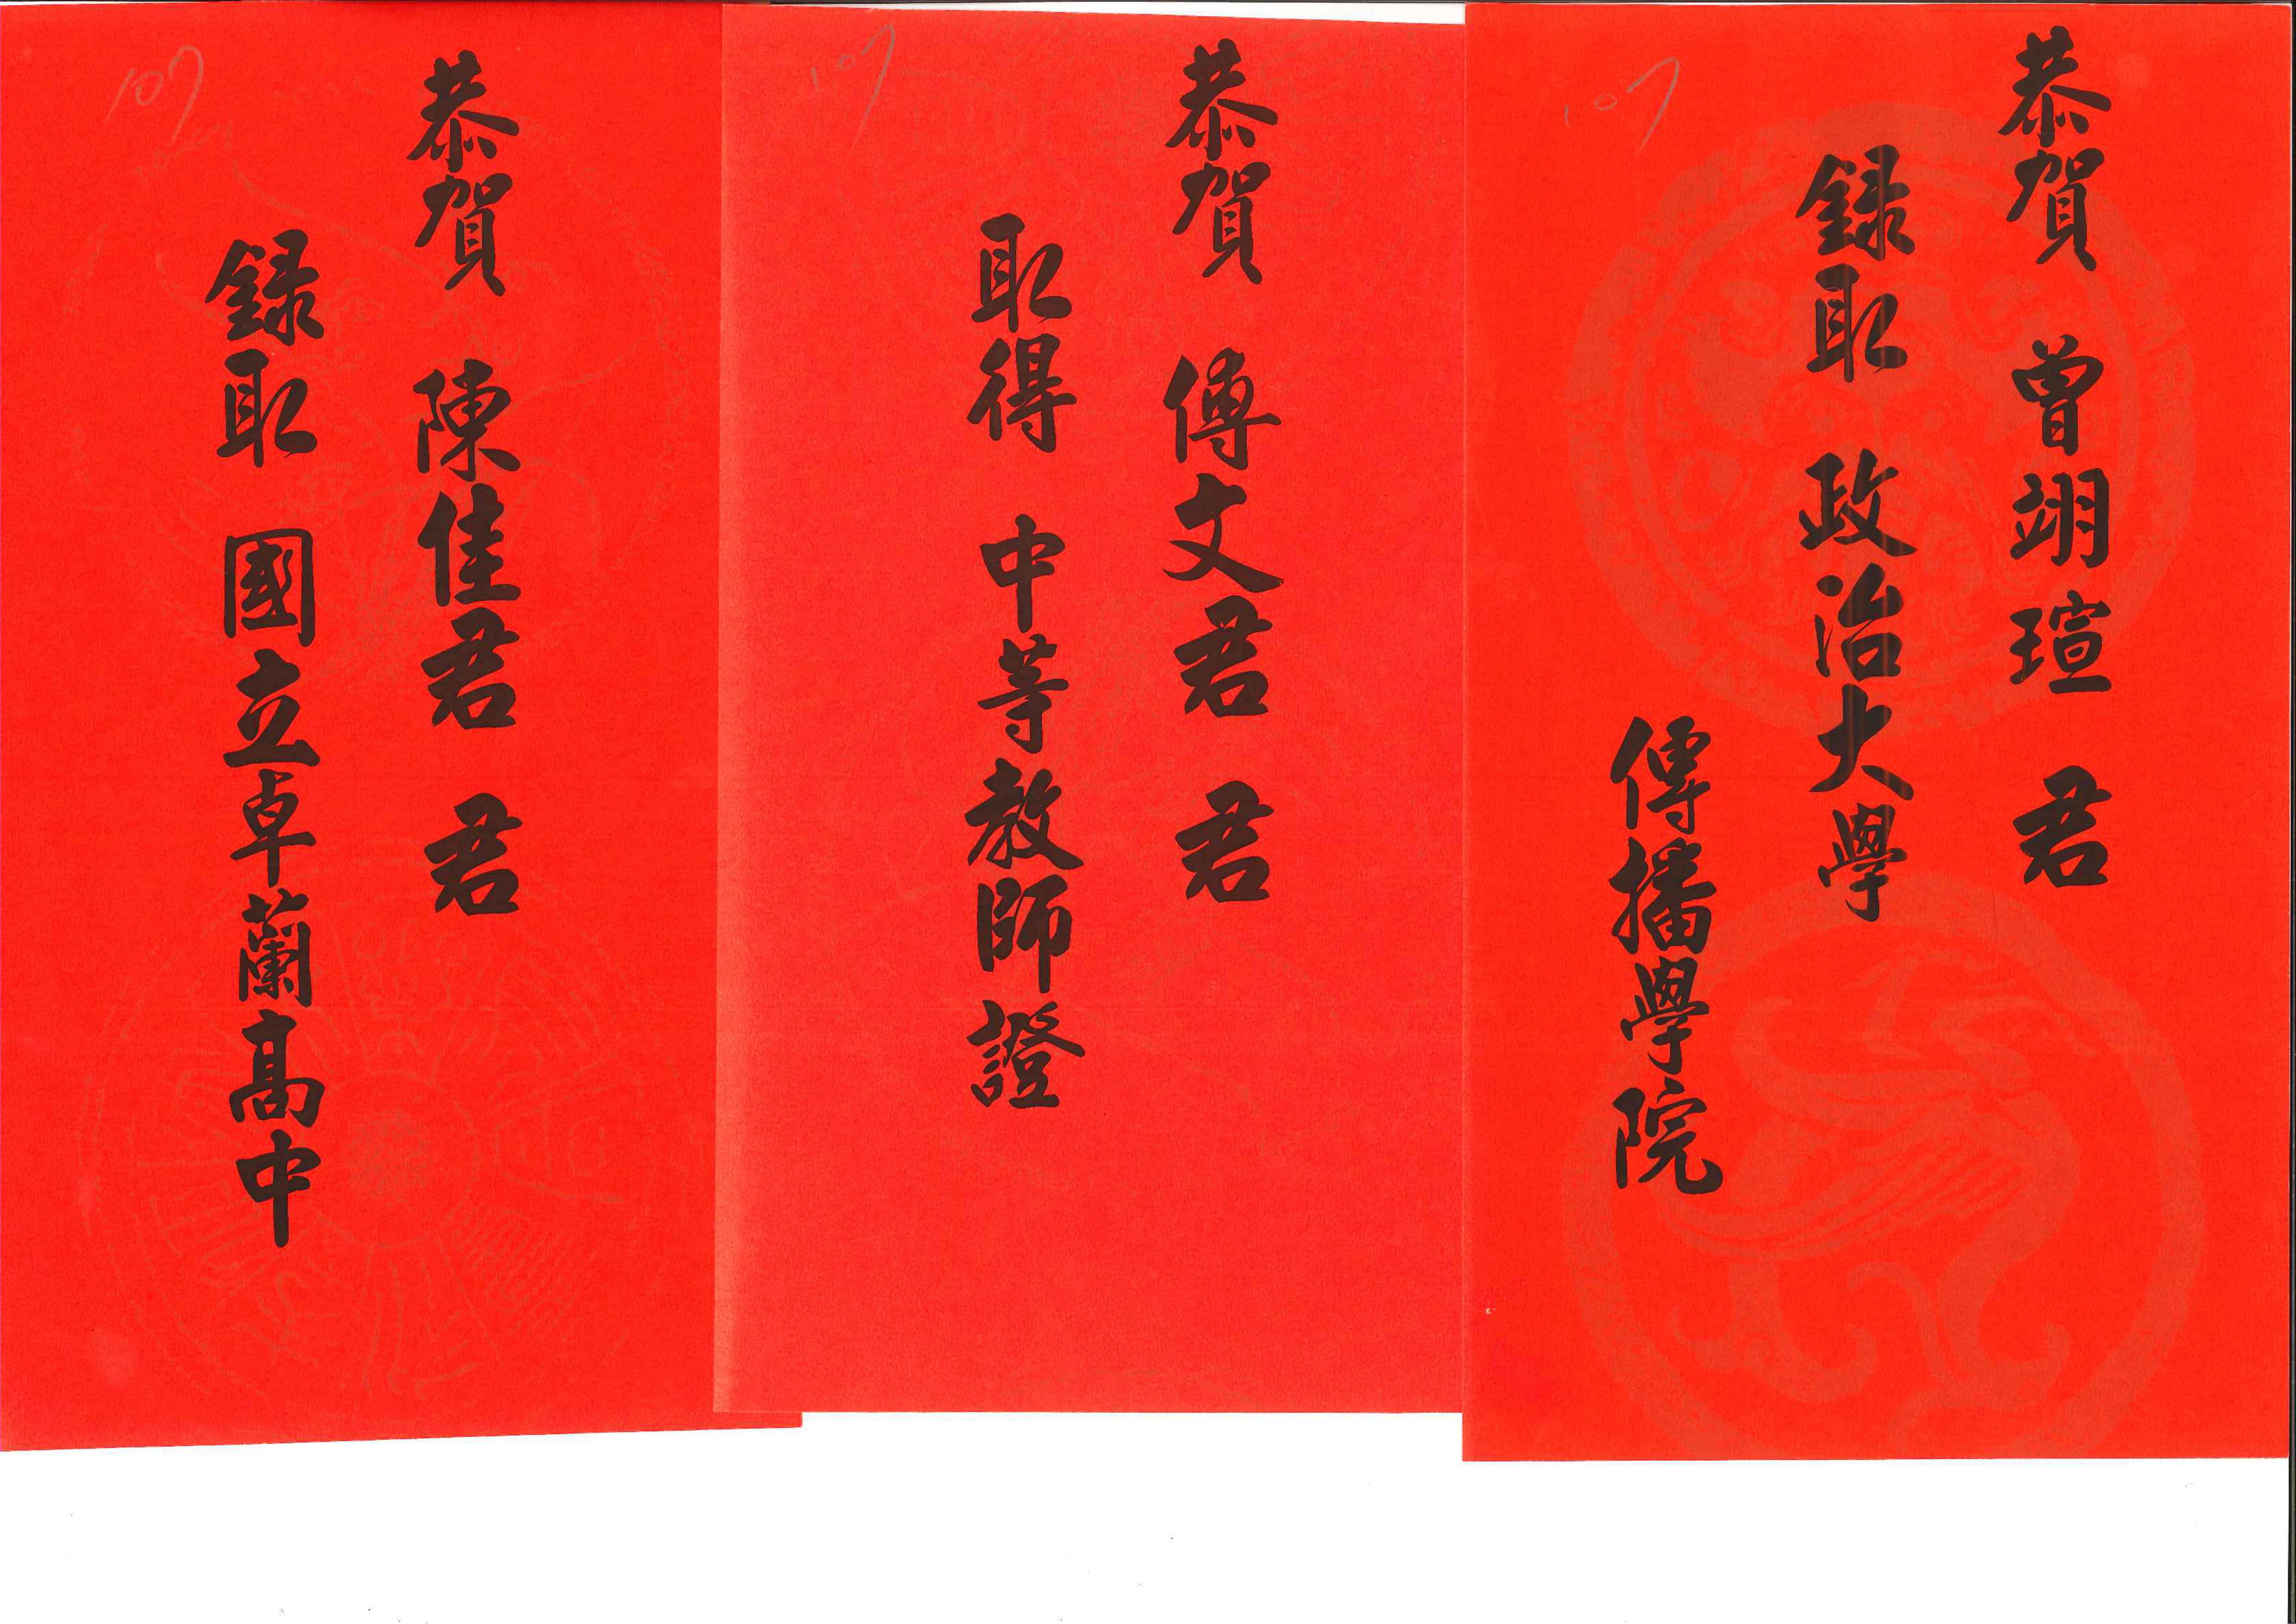 107
恭賀 曾翊瑄 君
錄取 政治大學
傳播學院
107
恭賀 傅文君 君
取得 中等教師證
107
恭賀 陳佳君 君
錄取 國立卓蘭高中